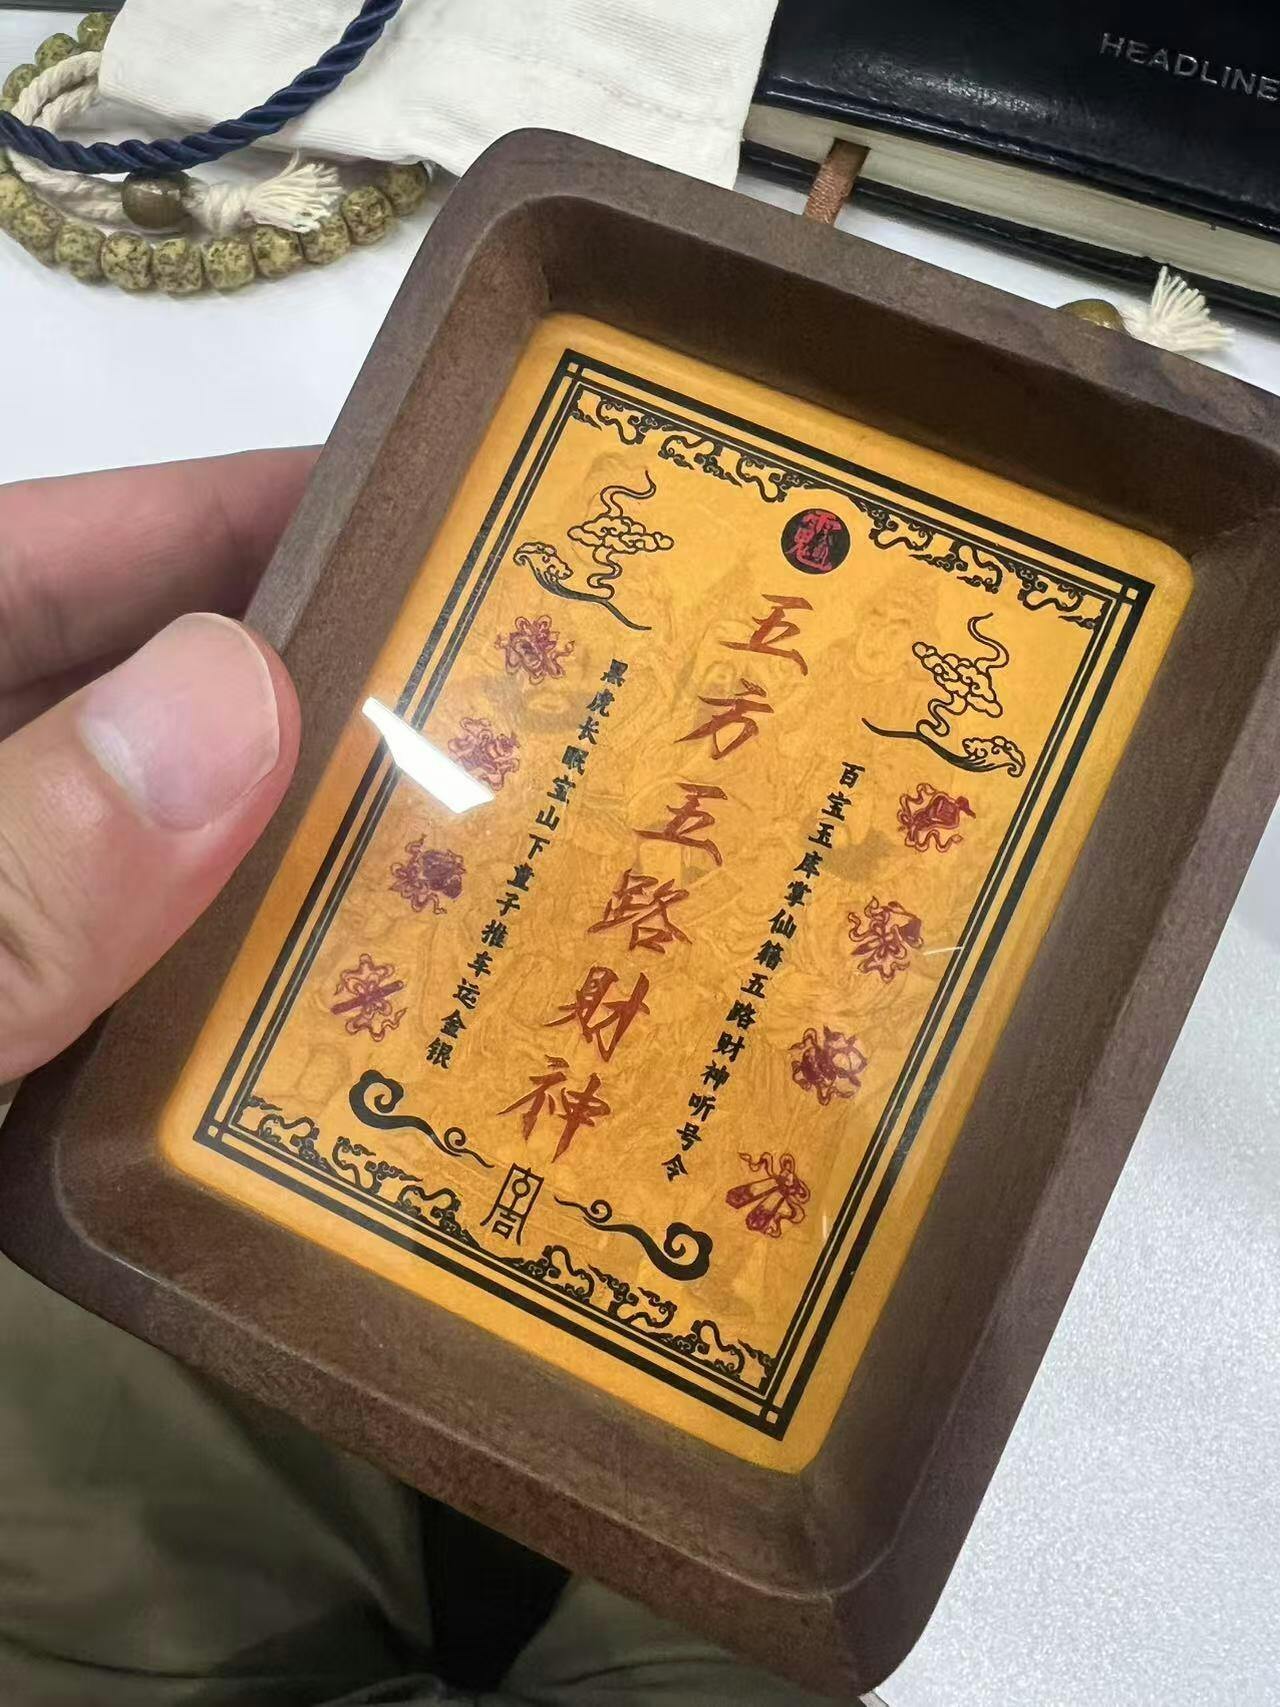 HEADLINE
五方五路财神
百宝玉库掌仙籍五路财神听号令
黑虎长眠宝山下童子推车运金银